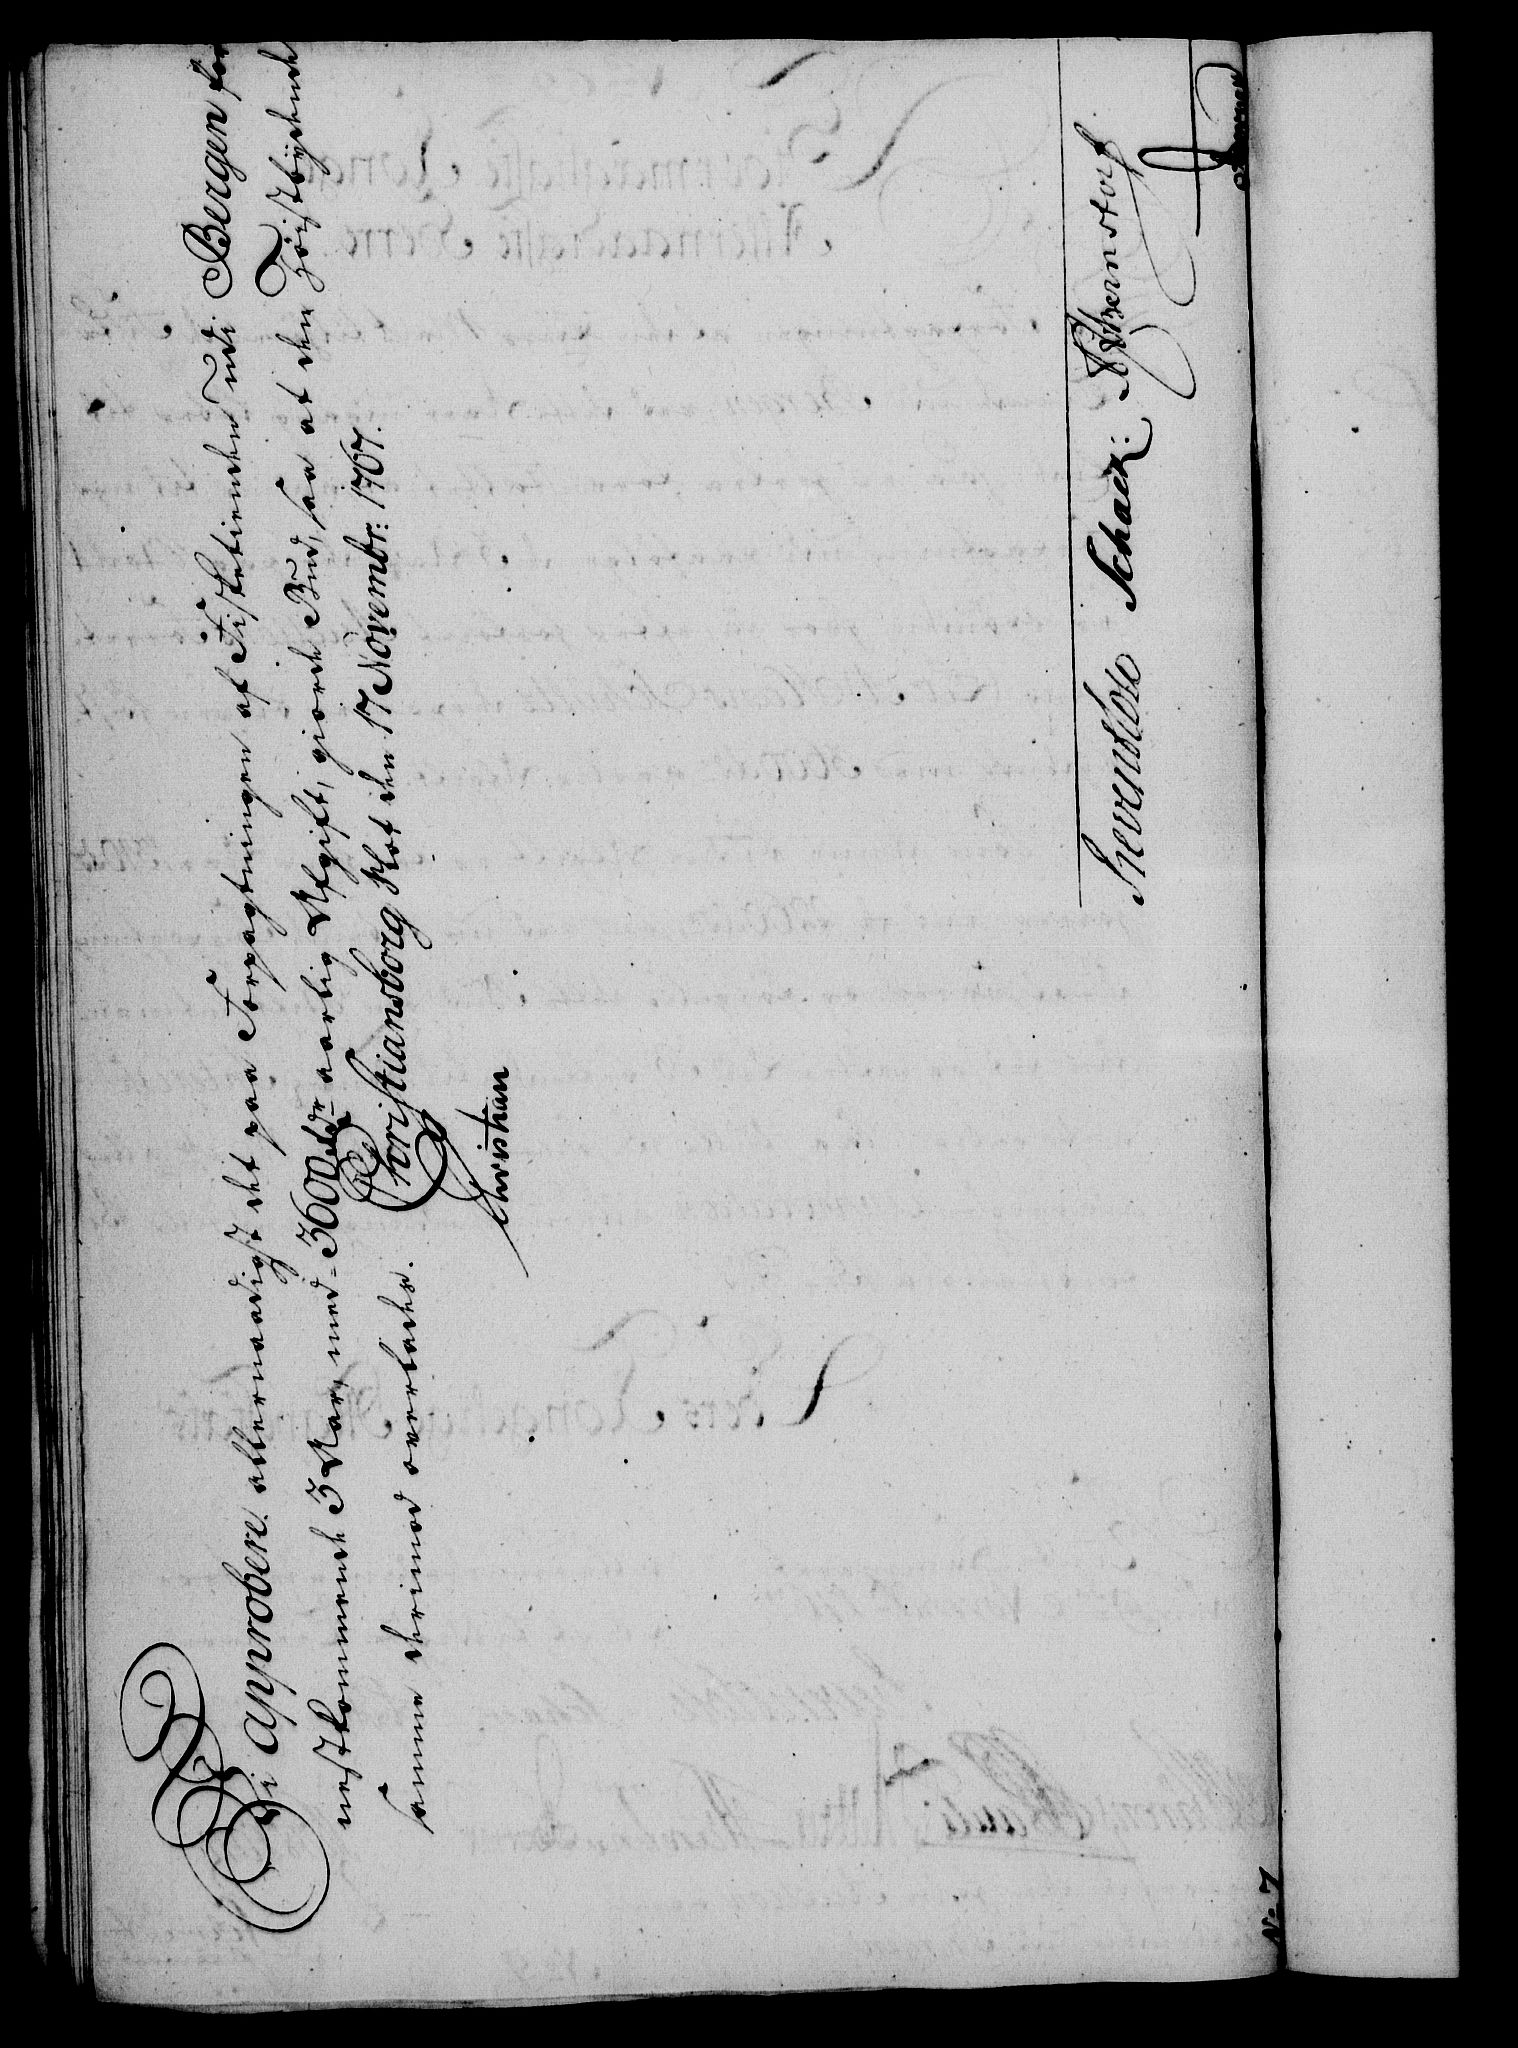 Vi approbere allernaadigst det paa Forpagtningen af Fisketienden udi Bergen for
nestkommende 3 Aar, med 3600 rdr aarlig Afgift, giorde Bud, saa at den Høistbydende
samme derimod overlades. Christiansborg Slot den 17 Novembr: 1767.
Christian
Reventlow Schack: HPBernstorf
No 7